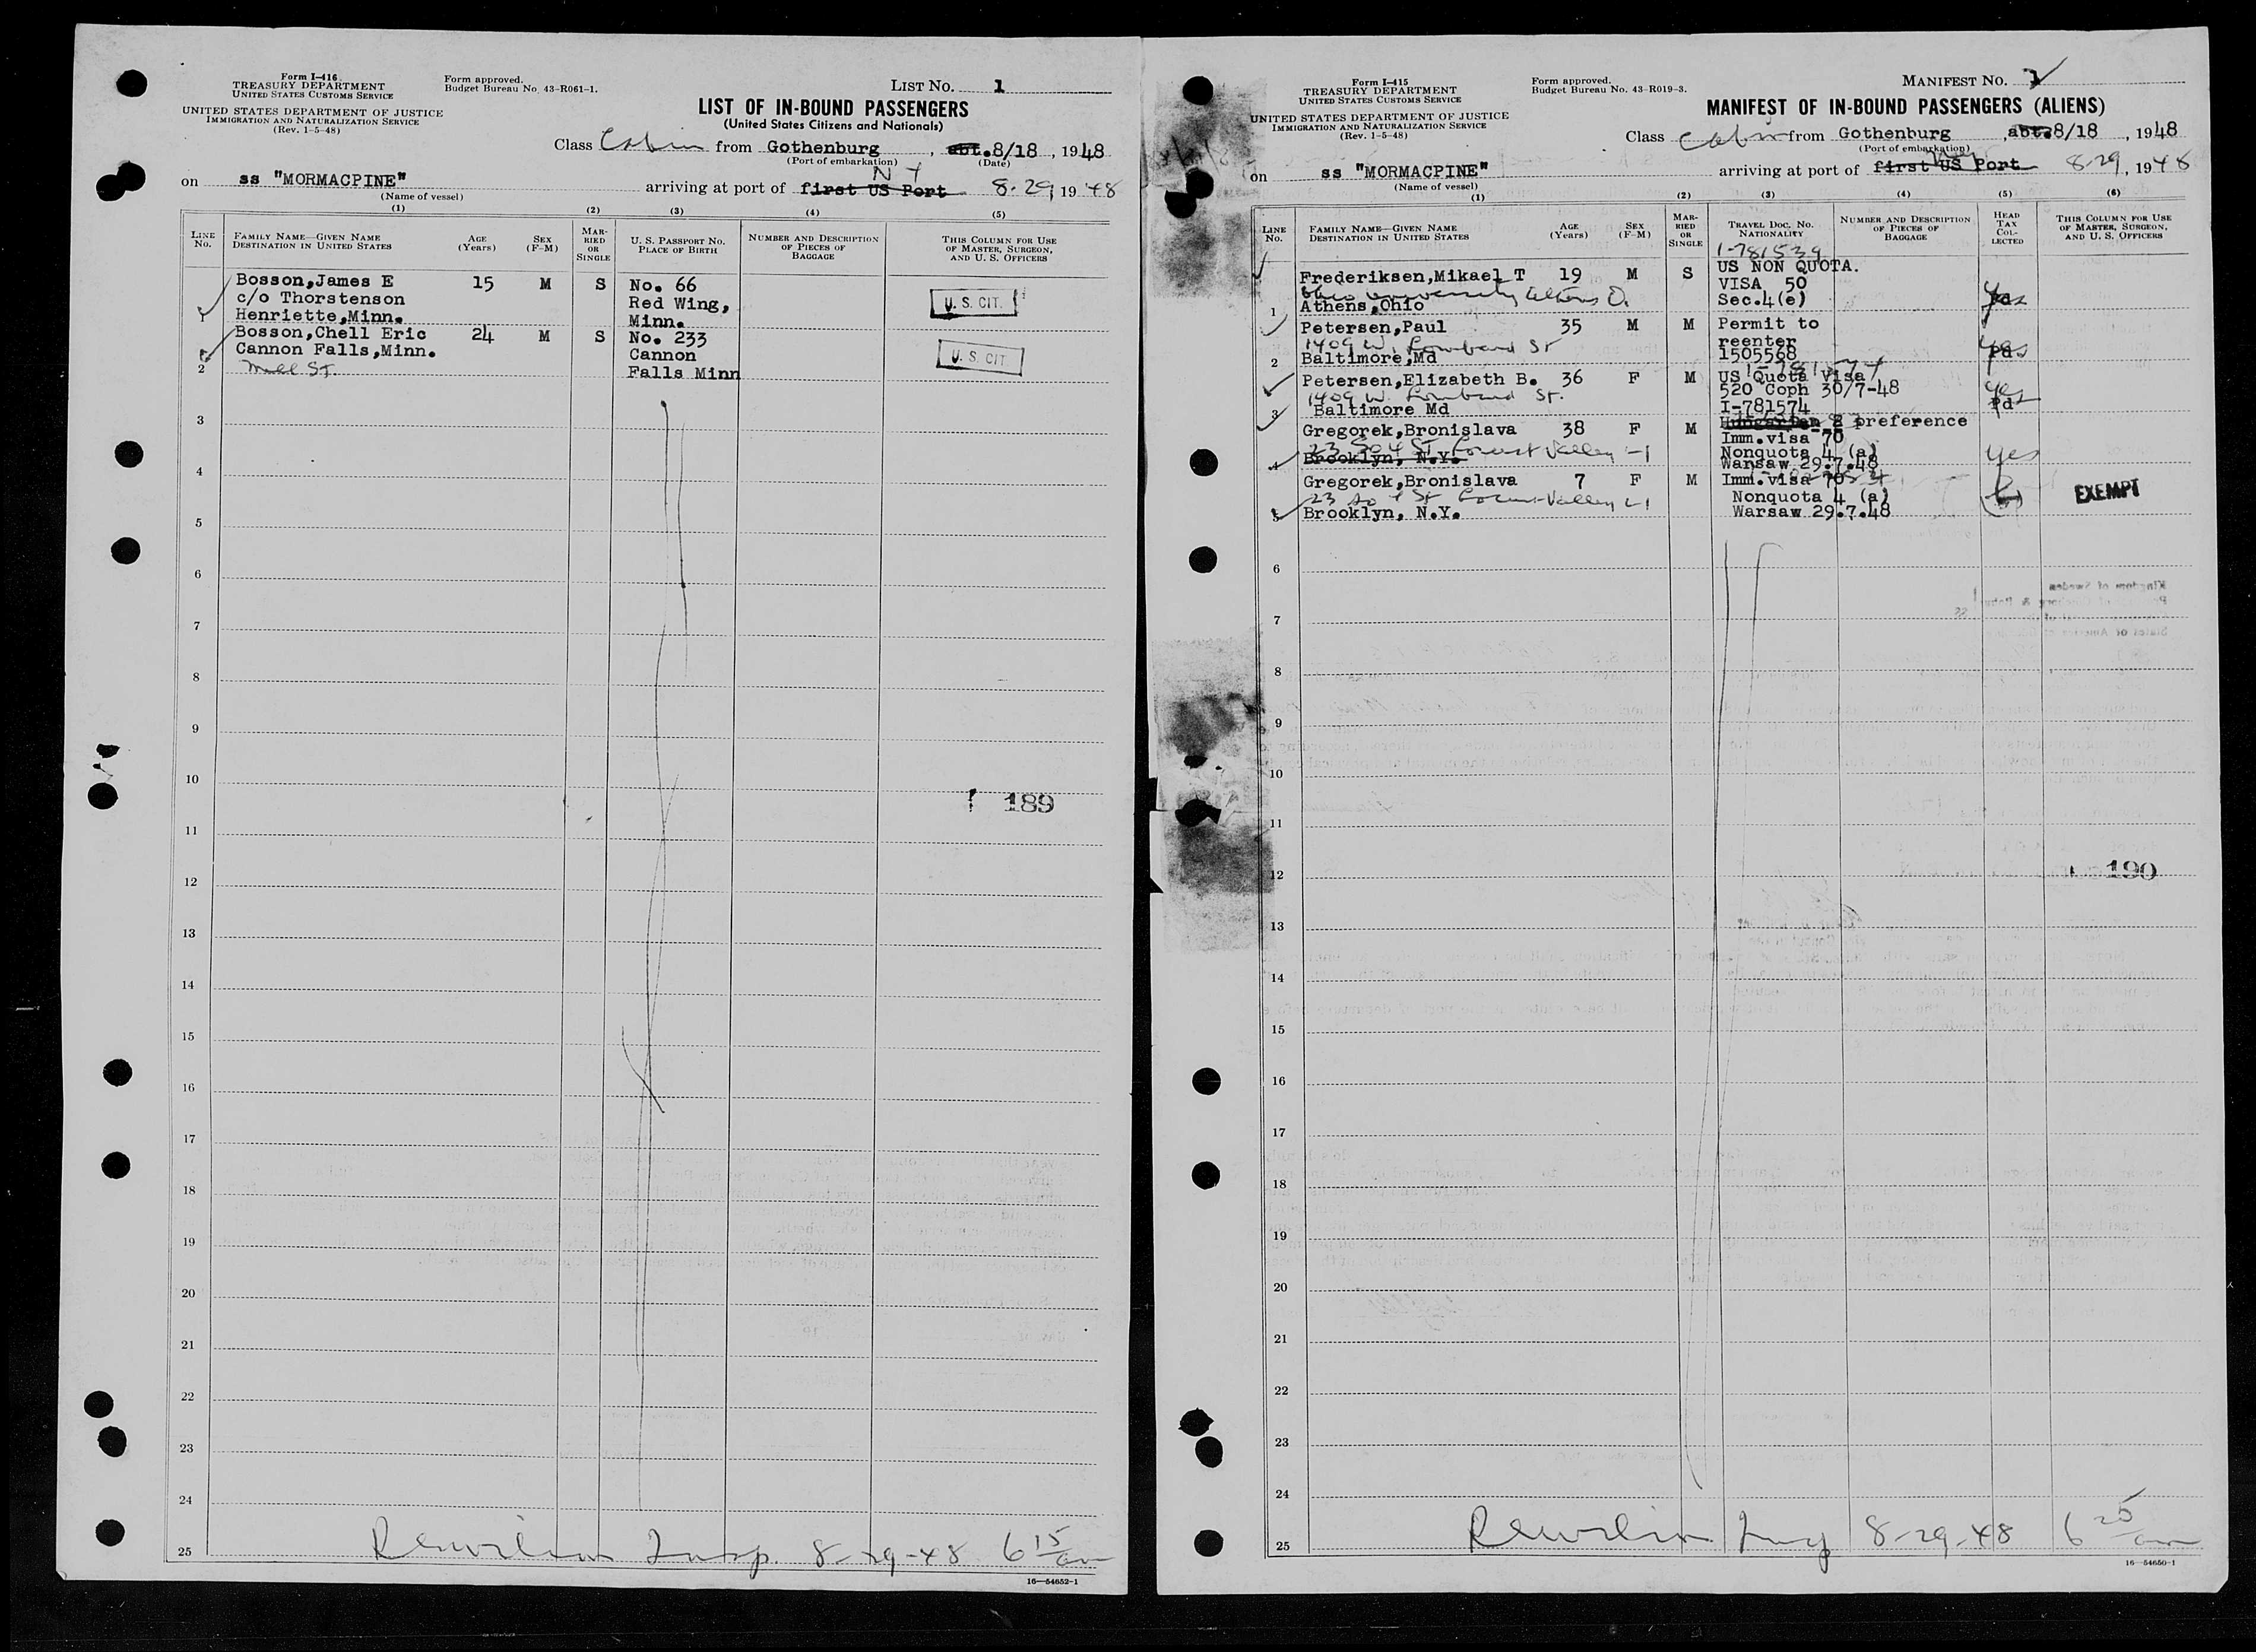 Form I-416
TREASURY DEPARTMENT
UNITED STATES CUSTOMS SERVICE
UNITED STATES DEPARTMENT OF JUSTICE
IMMIGRATION AND NATURALIZATION SERVICE
(Rev. 1-5-48)
Form approved.
Budget Bureau No. 43-R061-1.
LIST No. 1
LIST OF IN-BOUND PASSENGERS
(United States Citizens and Nationals)
Class Cabin from Gothenburg, abt. 8/18, 1948
(Port of embarkation) (Date)
on ss "MORMACPINE" arriving at port of first US Port N Y 8-29, 1948
(Name of vessel)
(1) (2) (3) (4) (5)
LINE No.
FAMILY NAME—GIVEN NAME
DESTINATION IN UNITED STATES
AGE (Years)
SEX (F-M)
MARRIED OR SINGLE
U. S. PASSPORT No.
PLACE OF BIRTH
NUMBER AND DESCRIPTION OF PIECES OF BAGGAGE
THIS COLUMN FOR USE OF MASTER, SURGEON, AND U. S. OFFICERS
1 Bosson,James E 15 M S No. 66
c/o Thorstenson Red Wing, U. S. CIT.
Henriette,Minn. Minn.
2 Bosson,Chell Eric 24 M S No. 233
Cannon Falls,Minn. Cannon U. S. CIT
Mill St. Falls Minn
3
4
5
6
7
8
9
10
189
11
12
13
14
15
16
17
18
19
20
21
22
23
24
25 Insp. 8-29-48 6 15 am
16—54652-1
Form I-415
TREASURY DEPARTMENT
UNITED STATES CUSTOMS SERVICE
UNITED STATES DEPARTMENT OF JUSTICE
IMMIGRATION AND NATURALIZATION SERVICE
(Rev. 1-5-48)
Form approved.
Budget Bureau No. 43-R019-3.
MANIFEST No.
MANIFEST OF IN-BOUND PASSENGERS (ALIENS)
Class Cabin from Gothenburg, abt. 8/18, 1948
(Port of embarkation)
on ss "MORMACPINE" arriving at port of first US Port 8-29, 1948
(Name of vessel)
(1) (2) (3) (4) (5) (6)
LINE No.
FAMILY NAME—GIVEN NAME
DESTINATION IN UNITED STATES
AGE (Years)
SEX (F-M)
MARRIED OR SINGLE
TRAVEL DOC. No.
NATIONALITY
NUMBER AND DESCRIPTION OF PIECES OF BAGGAGE
HEAD TAX COLLECTED
THIS COLUMN FOR USE OF MASTER, SURGEON, AND U. S. OFFICERS
I-781539
Frederiksen,Mikael T 19 M S US NON QUOTA.
Ohio University Athens O. VISA 50
1 Athens,Ohio Sec.4(e) Yes
Petersen,Paul 35 M M Permit to
1409 W. Lombard St reenter
2 Baltimore,Md 1505568 Yes
Petersen,Elizabeth B. 36 F M US Quota Visa
1409 W. Lombard St. 520 Coph 30/7-48 Yes
3 Baltimore Md I-781574 Pd
Gregorek,Bronislava 38 F M Hungarian 2 preference
23 So 4 St Locust Valley L I Imm.visa 70
4 Brooklyn, N.Y. Nonquota 4 (a) Yes
Warsaw 29.7.48
Gregorek,Bronislava 7 F M Imm.visa 70
23 So 4 St Locust Valley L I Nonquota 4 (a) EXEMPT
5 Brooklyn, N.Y. Warsaw 29.7.48
6
7
8
9
10
11
12
190
13
14
15
16
17
18
19
20
21
22
23
24
25 8-29-48 6 25 am
16—54650-1